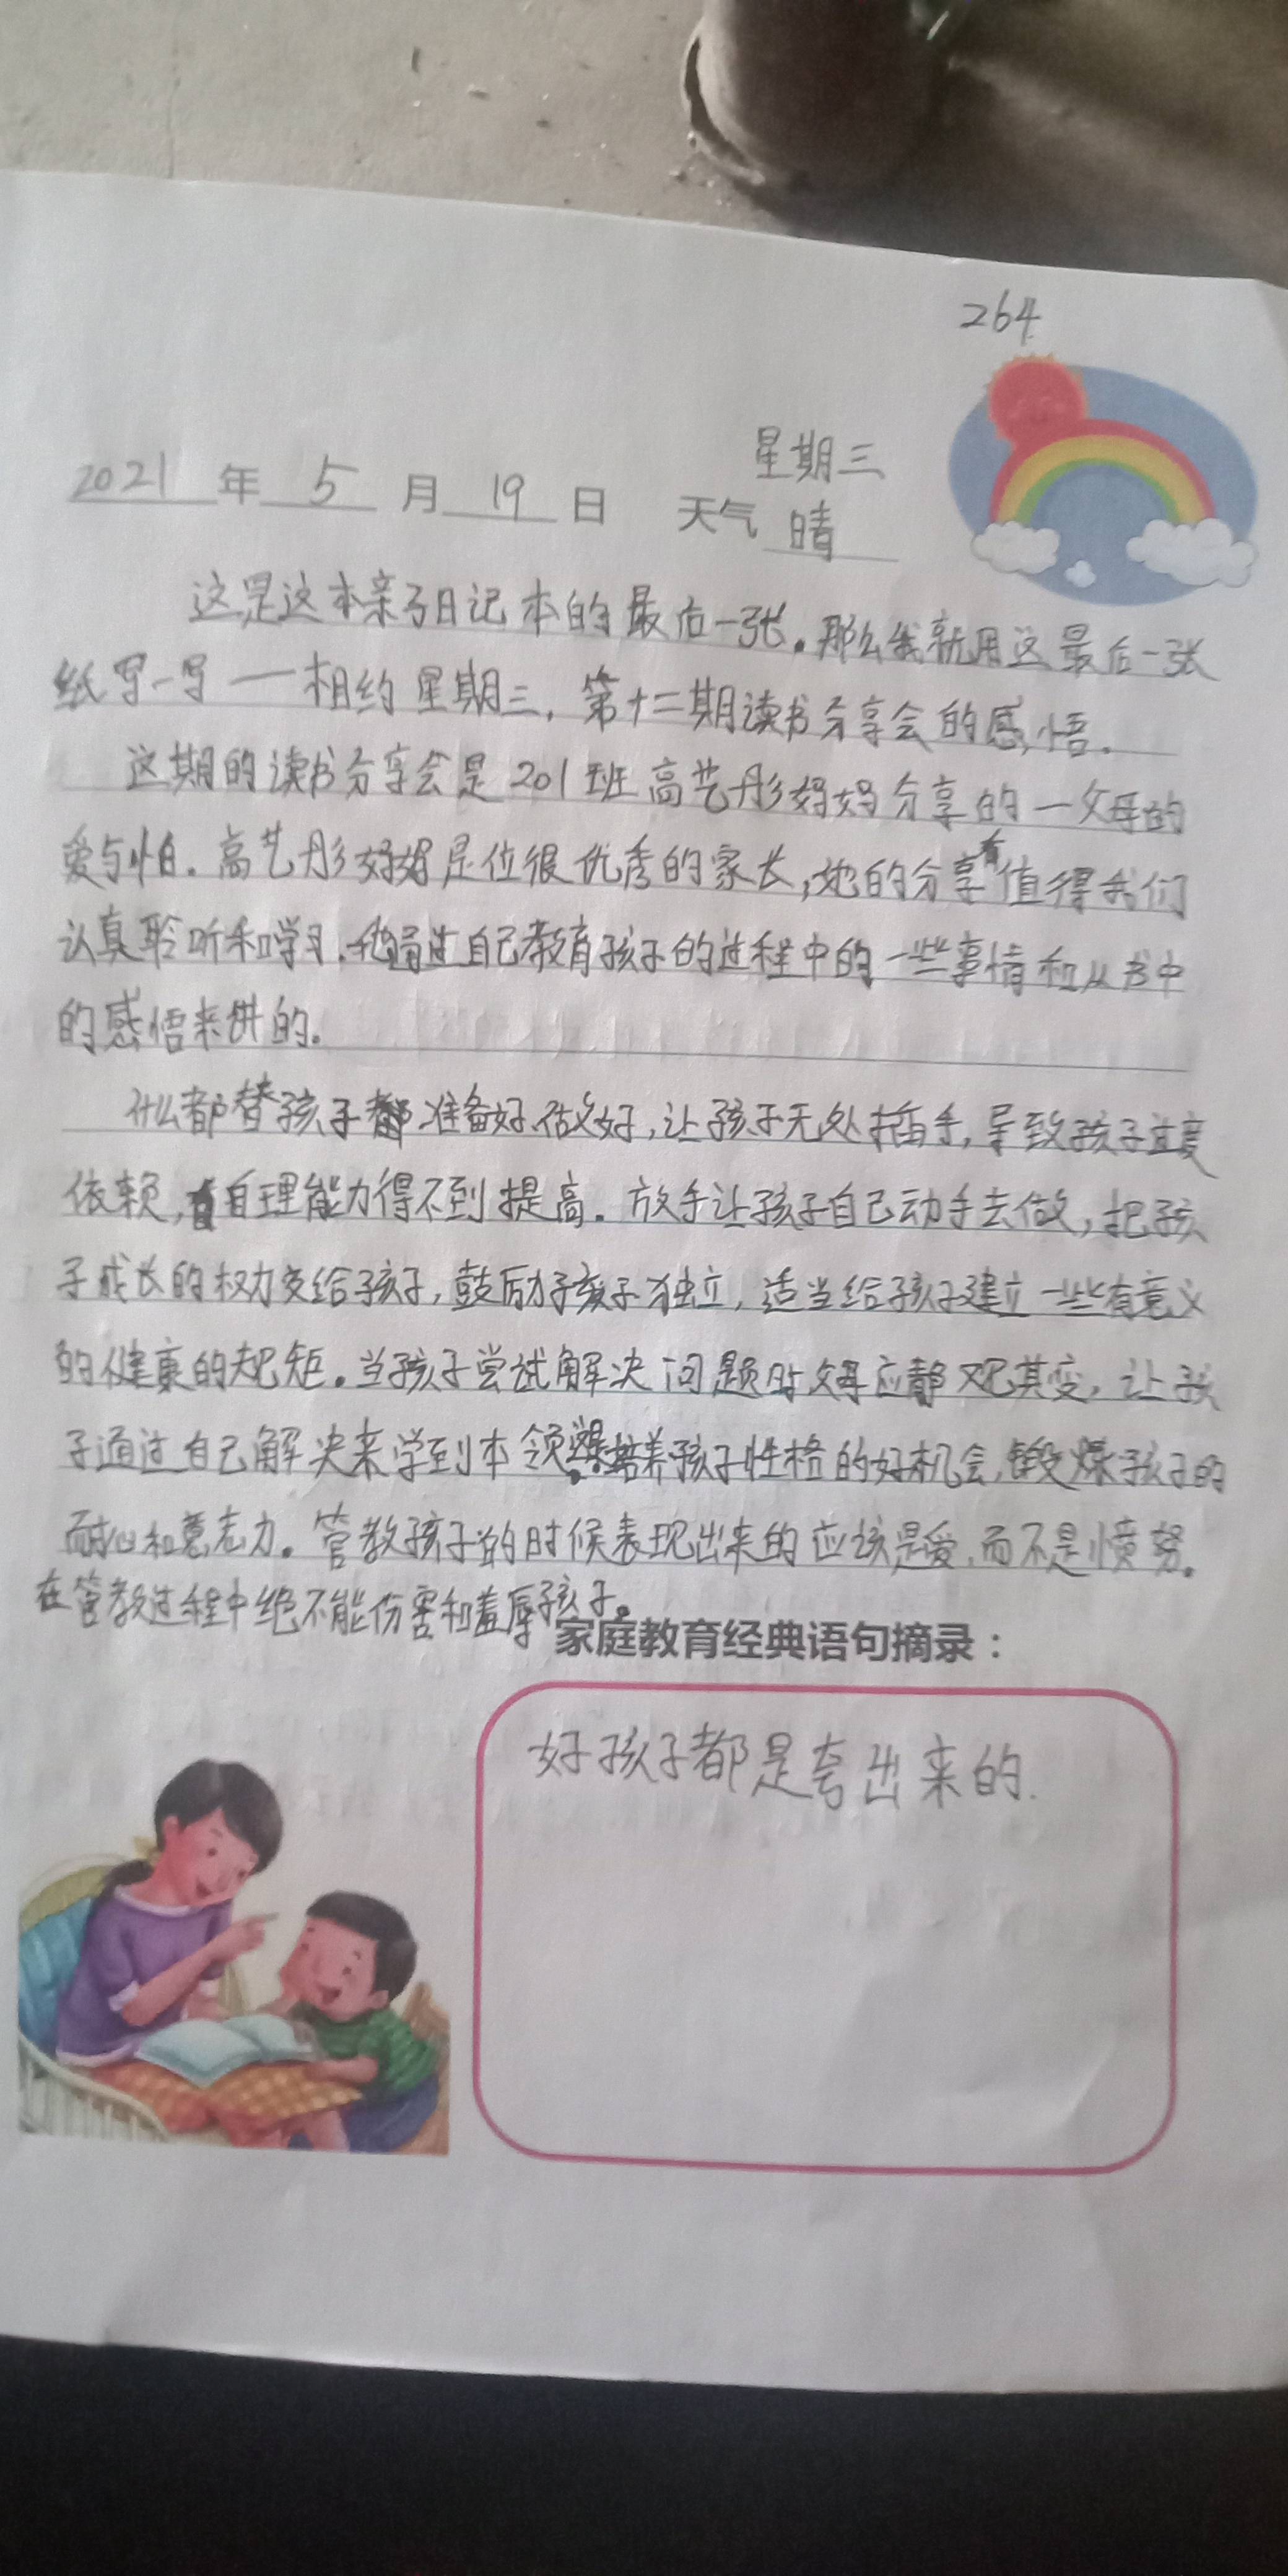 264
星期三
2021年5月19日 天气晴
这是这本亲子日记本的最后一张。那么我就用这最后一张
纸写一写一相约星期三,第十二期读书分享会的感悟.
这期的读书分享会是201班高艺彤妈妈分享的一父母的
爱与怕.高艺彤妈妈是位很优秀的家长,她的分享有值得我们
认真聆听和学习.她通过自己教育孩子的过程中的一些事情和从书中
的感悟来讲的.
什么都替孩子都准备好,做好,让孩子无处插手,导致孩子过度
依赖,自理能力得不到提高.放手让孩子自己动手去做,把孩
子成长的权力交给孩子,鼓励孩子独立,适当给孩子建立一些有意义
的健康的规矩.当孩子尝试解决问题时父母应静观其变,让孩
子通过自己解决来学到本领.培养孩子性格的好机会,锻炼孩子的
耐心和意志力.管教孩子的时候表现出来的应该是爱,而不是愤努.
在管教过程中绝不能伤害和羞辱孩子.
家庭教育经典语句摘录：
好孩子都是夸出来的.